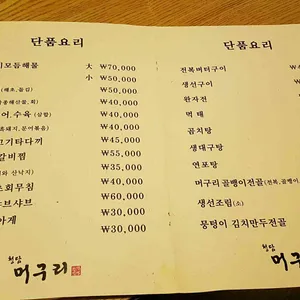 단품요리
모듬해물 大 ₩70,000
小 ₩50,000
₩50,000
₩40,000
어,수육 ₩40,000
₩40,000
고기타다끼 ₩45,000
갈비찜 ₩55,000
₩35,000
초회무침 ₩40,000
브샤브 ₩60,000
아게 ₩30,000
₩30,000
청담
머구리
단품요리
전복버터구이
생선구이
완자전
먹태
곰치탕
생대구탕
연포탕
머구리골뱅이전골
생선조림(소)
뭉텅이 김치만두전골
청담
머구리